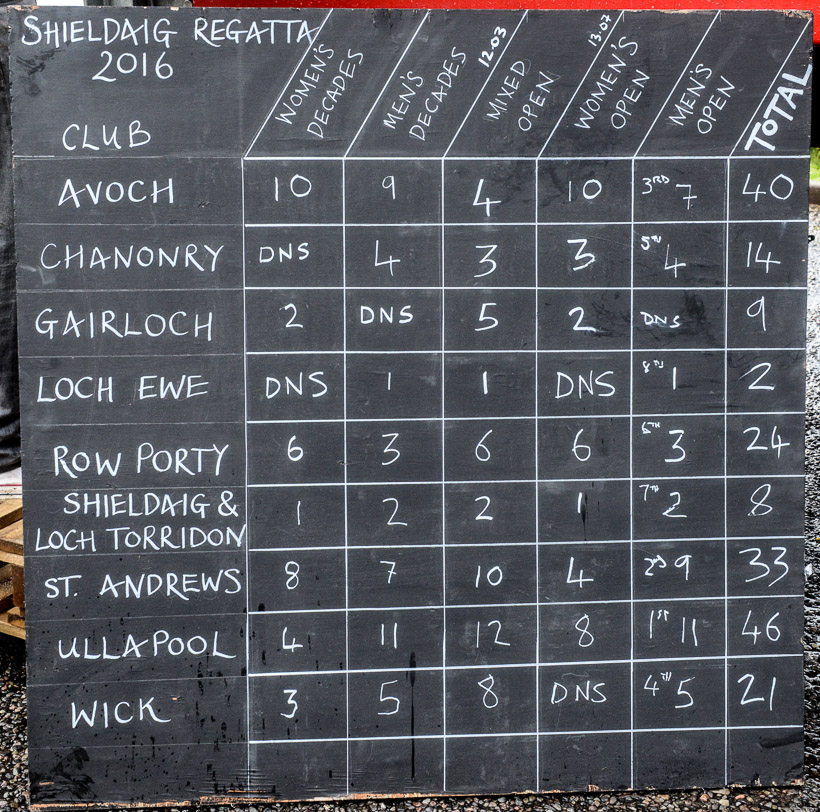 SHIELDAIG REGATTA
2016
CLUB
WOMEN'S DECADES
MEN'S DECADES
12.03
MIXED OPEN
13.07
WOMEN'S OPEN
MEN'S OPEN
TOTAL
AVOCH 10 9 4 10 3RD 7 40
CHANONRY DNS 4 3 3 5TH 4 14
GAIRLOCH 2 DNS 5 2 DNS 9
LOCH EWE DNS 1 1 DNS 8TH 1 2
ROW PORTY 6 3 6 6 6TH 3 24
SHIELDAIG &
LOCH TORRIDON 1 2 2 1 7TH 2 8
ST. ANDREWS 8 7 10 4 2ND 9 33
ULLAPOOL 4 11 12 8 1ST 11 46
WICK 3 5 8 DNS 4TH 5 21